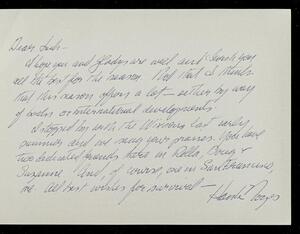 Dear Jack -
I hope you and Gladys are well and I wish you
all the best for the season. Not that I think
that this season offers a lot - either by way
of books or international developments.
I stopped by with the Wixsons last early
summer and we sang your praises. You have
two dedicated friends here in Rolla, Doug &
Suzanne. And, of course, one in San Francisco,
me. All best wishes for survival -